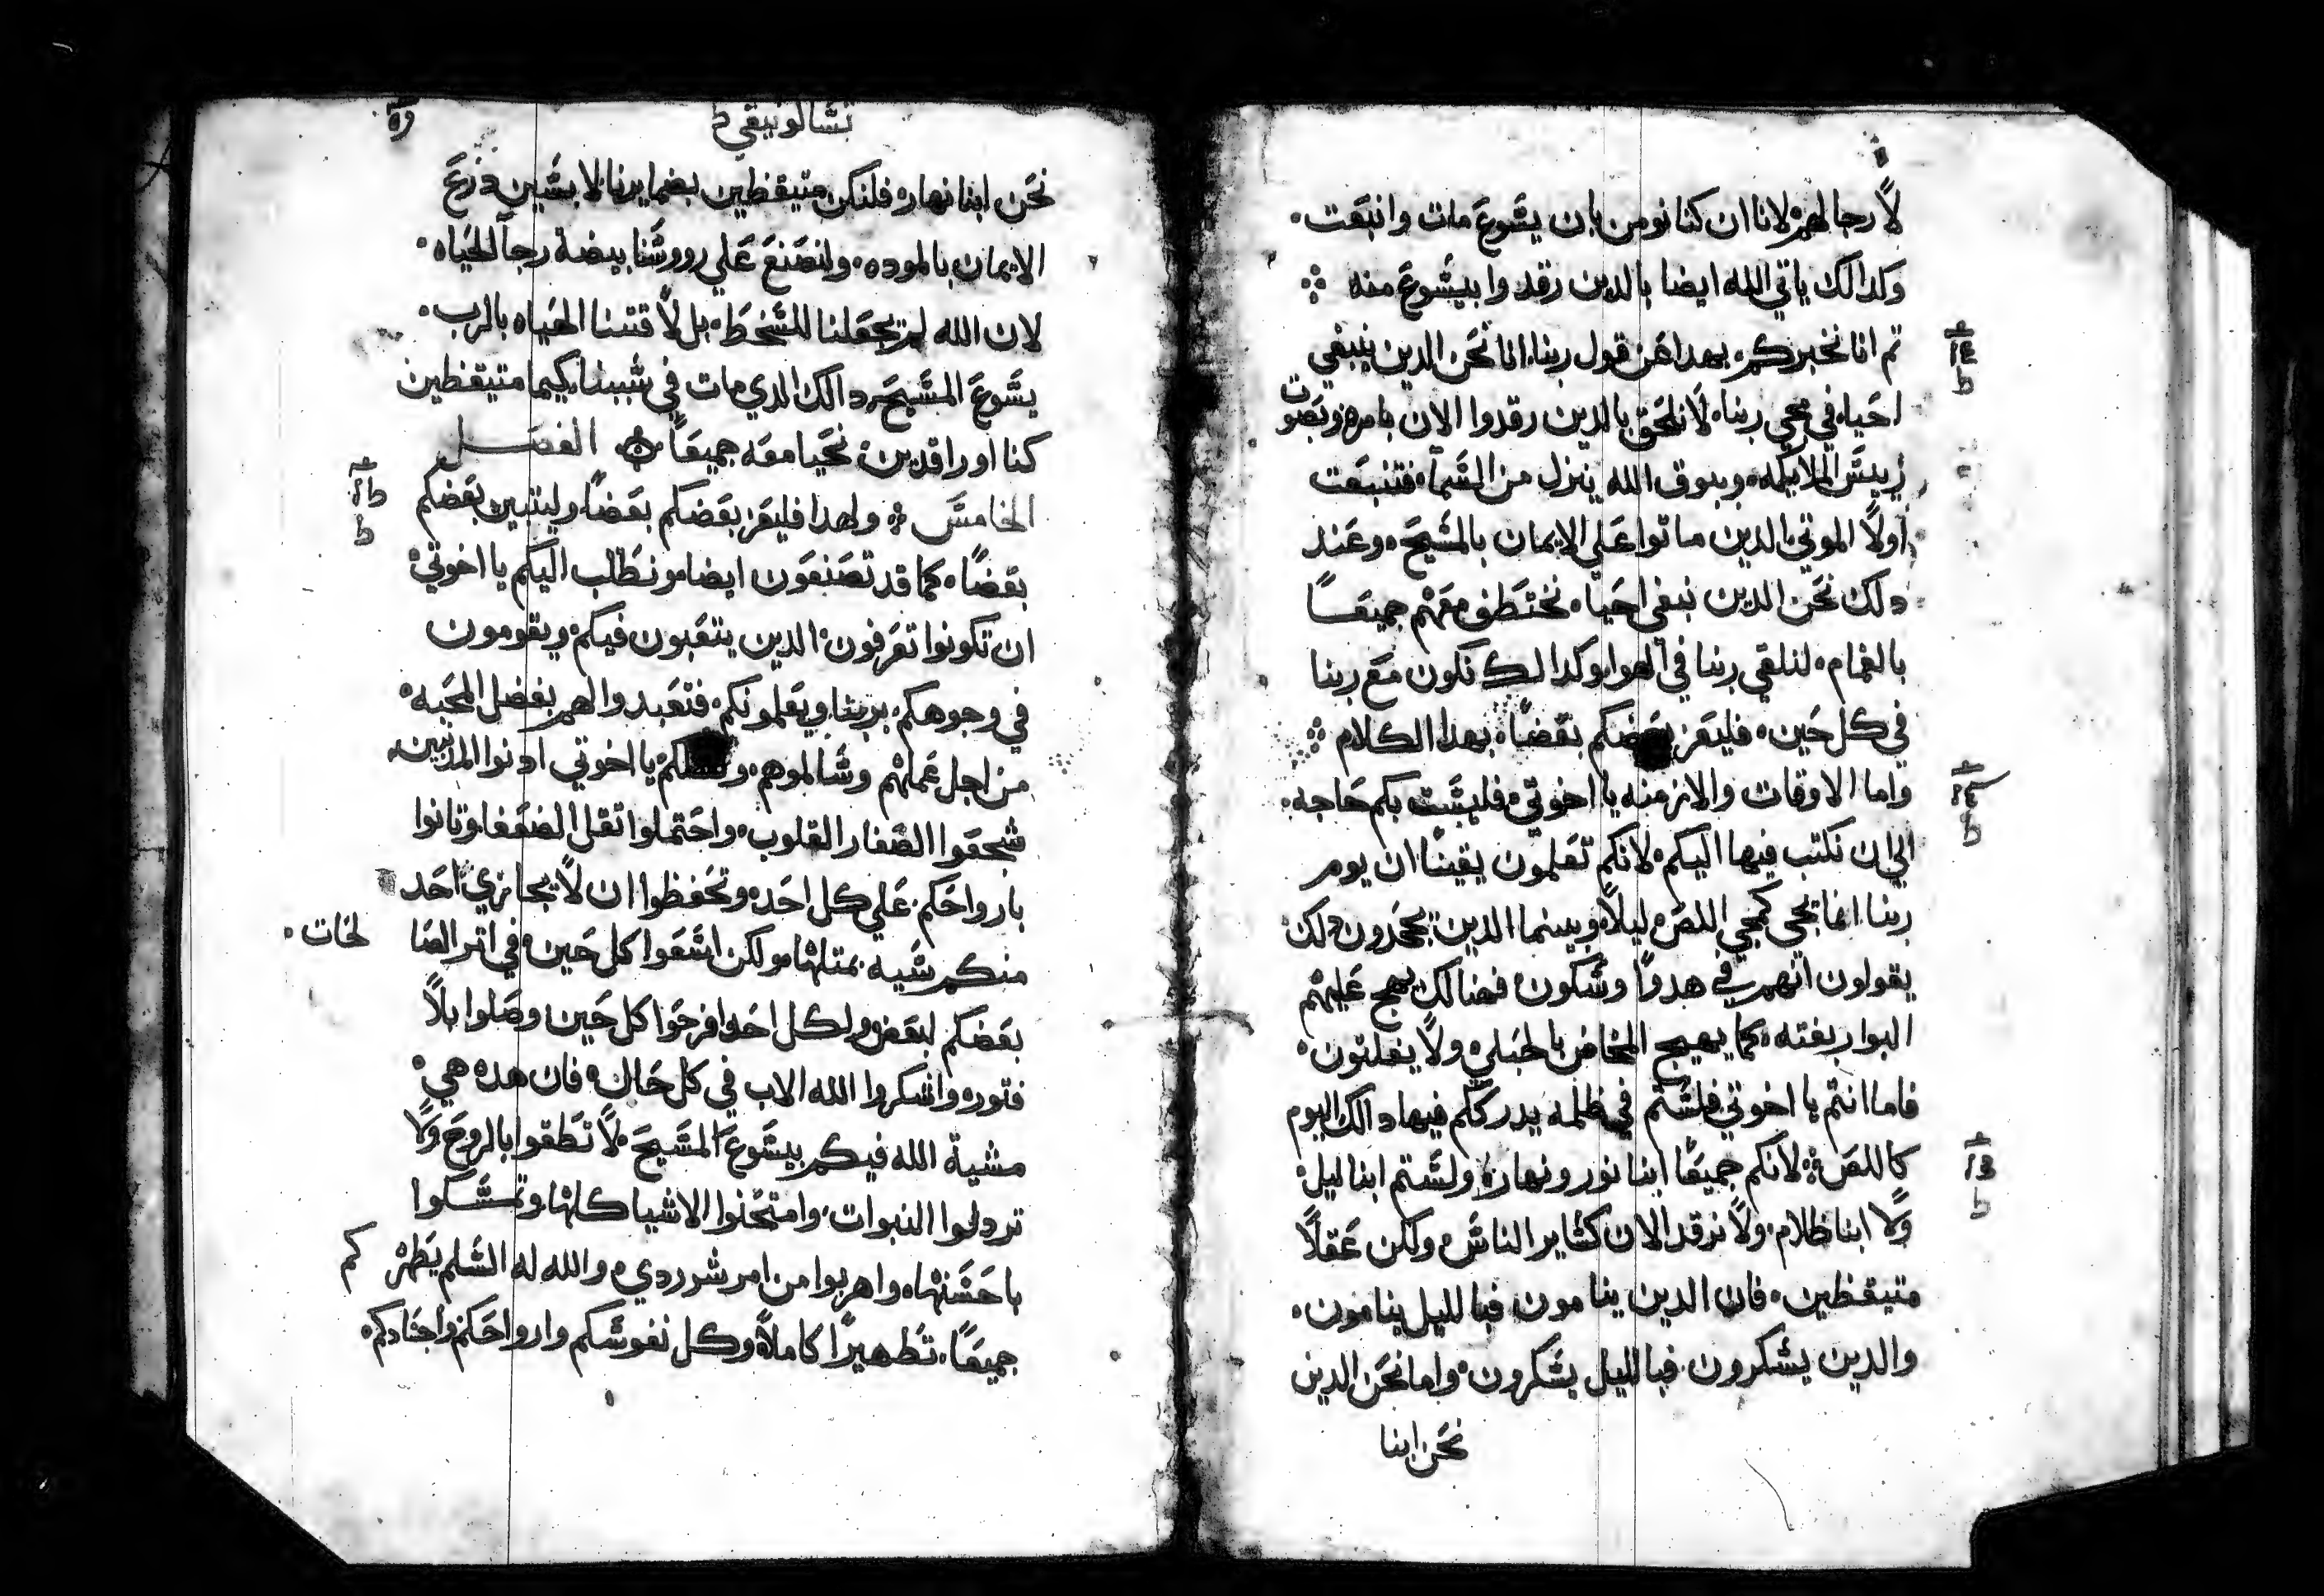 لا رجا لهم لانا ان كنا نومن بان يشوع مات وانبعت
وكدالك ياتي الله ايضا بالدين رقدوا بيشوع منه
تم انا نخبركم بهدا عن قول ربنا انا نحن الدين ينبغي
احيا في مجي ربنا لا نلحق بالدين رقدوا الان بامره وبصوت
رييس الملايكه وببوق الله ينزل من الشما فتنبعت
اولا الموتي الدين ماتوا علي الايمان بالمشيح وعند
دلك نحن الدين نبقي احيا نختطف معهم جميعا
بالغمام لنلقي ربنا في الهوا وكدالك نكون مع ربنا
في كل حين فليعز بعضكم بعضا بهدا الكلام
واما الاوقات والازمنه يا اخوتي فليشت بكم حاجه
الي ان نكتب فيها اليكم لانكم تعلمون يقينا ان يوم
ربنا انما يجي كمجي اللص ليلا وبينما الدين يجحدون دلك
يقولون انهم في هدوا وشكون فهنالك يهيج عليهم
البوار بغته كما يهيج المخاض بالحبلي ولا يفلتون
فاما انتم يا اخوتي فلشتم في ظلمه يدرككم فيها دالك اليوم
كاللص لانكم جميعا ابنا نور ونهار ولشتم ابنا ليل
ولا ابنا ظلام ولا نرقد الان كشاير الناش ولكن عقلا
متيقظين فان الدين ينامون فبالليل ينامون
والدين يشكرون فبالليل يشكرون واما نحن الدين
نحن ابنا
تشالونيقي ط
نحن ابنا نهار فلنكن متيقظين بضمايرنا لابشين درع
الايمان بالموده ولنصنع علي رووشنا بيضة رجا الحياه
لان الله لم يجعلنا للشخط بل لاقتنا الحياه بالرب
يشوع المشيح دالك الدي مات في شببنا كيما متيقظين
كنا او راقدين نحيا معه جميعا الفصل
الخامش ولهدا فليعز بعضكم بعضا وليتبين بعضكم
بعضا كما قد تصنعون ايضا ونطلب اليكم يا اخوتي
ان تكونوا تعرفون الدين يتعبون فيكم ويقومون
في وجوهكم بربنا ويعلمونكم فتعبدوا لهم بفضل المحبه
من اجل عملهم وشالموهم يا اخوتي ادنوا المدنبين
شجعوا الصغار القلوب واحتملوا تقل الضعفا وتانوا
بارواحكم علي كل احد وتحفظوا ان لا يجازي احد
منكم شيه بمتلها ولكن اشعوا كل حين في اتر الصا لحات
بعضكم لبعض ولكل احد افرحوا كل حين وصلوا بلا
فتور واشكروا الله الاب في كل حال فان هده هي
مشية الله فيكم بيشوع المشيح لا تطفوا بالروح ولا
تردلوا النبوات وامتحنوا الاشيا كلها وتمشكوا
باحشنها واهربوا من امر شر ردي والله له الشلم يطهر كم
جميعا تطهيرا كاملا وكل نفوشكم وارواحكم واجشادكم